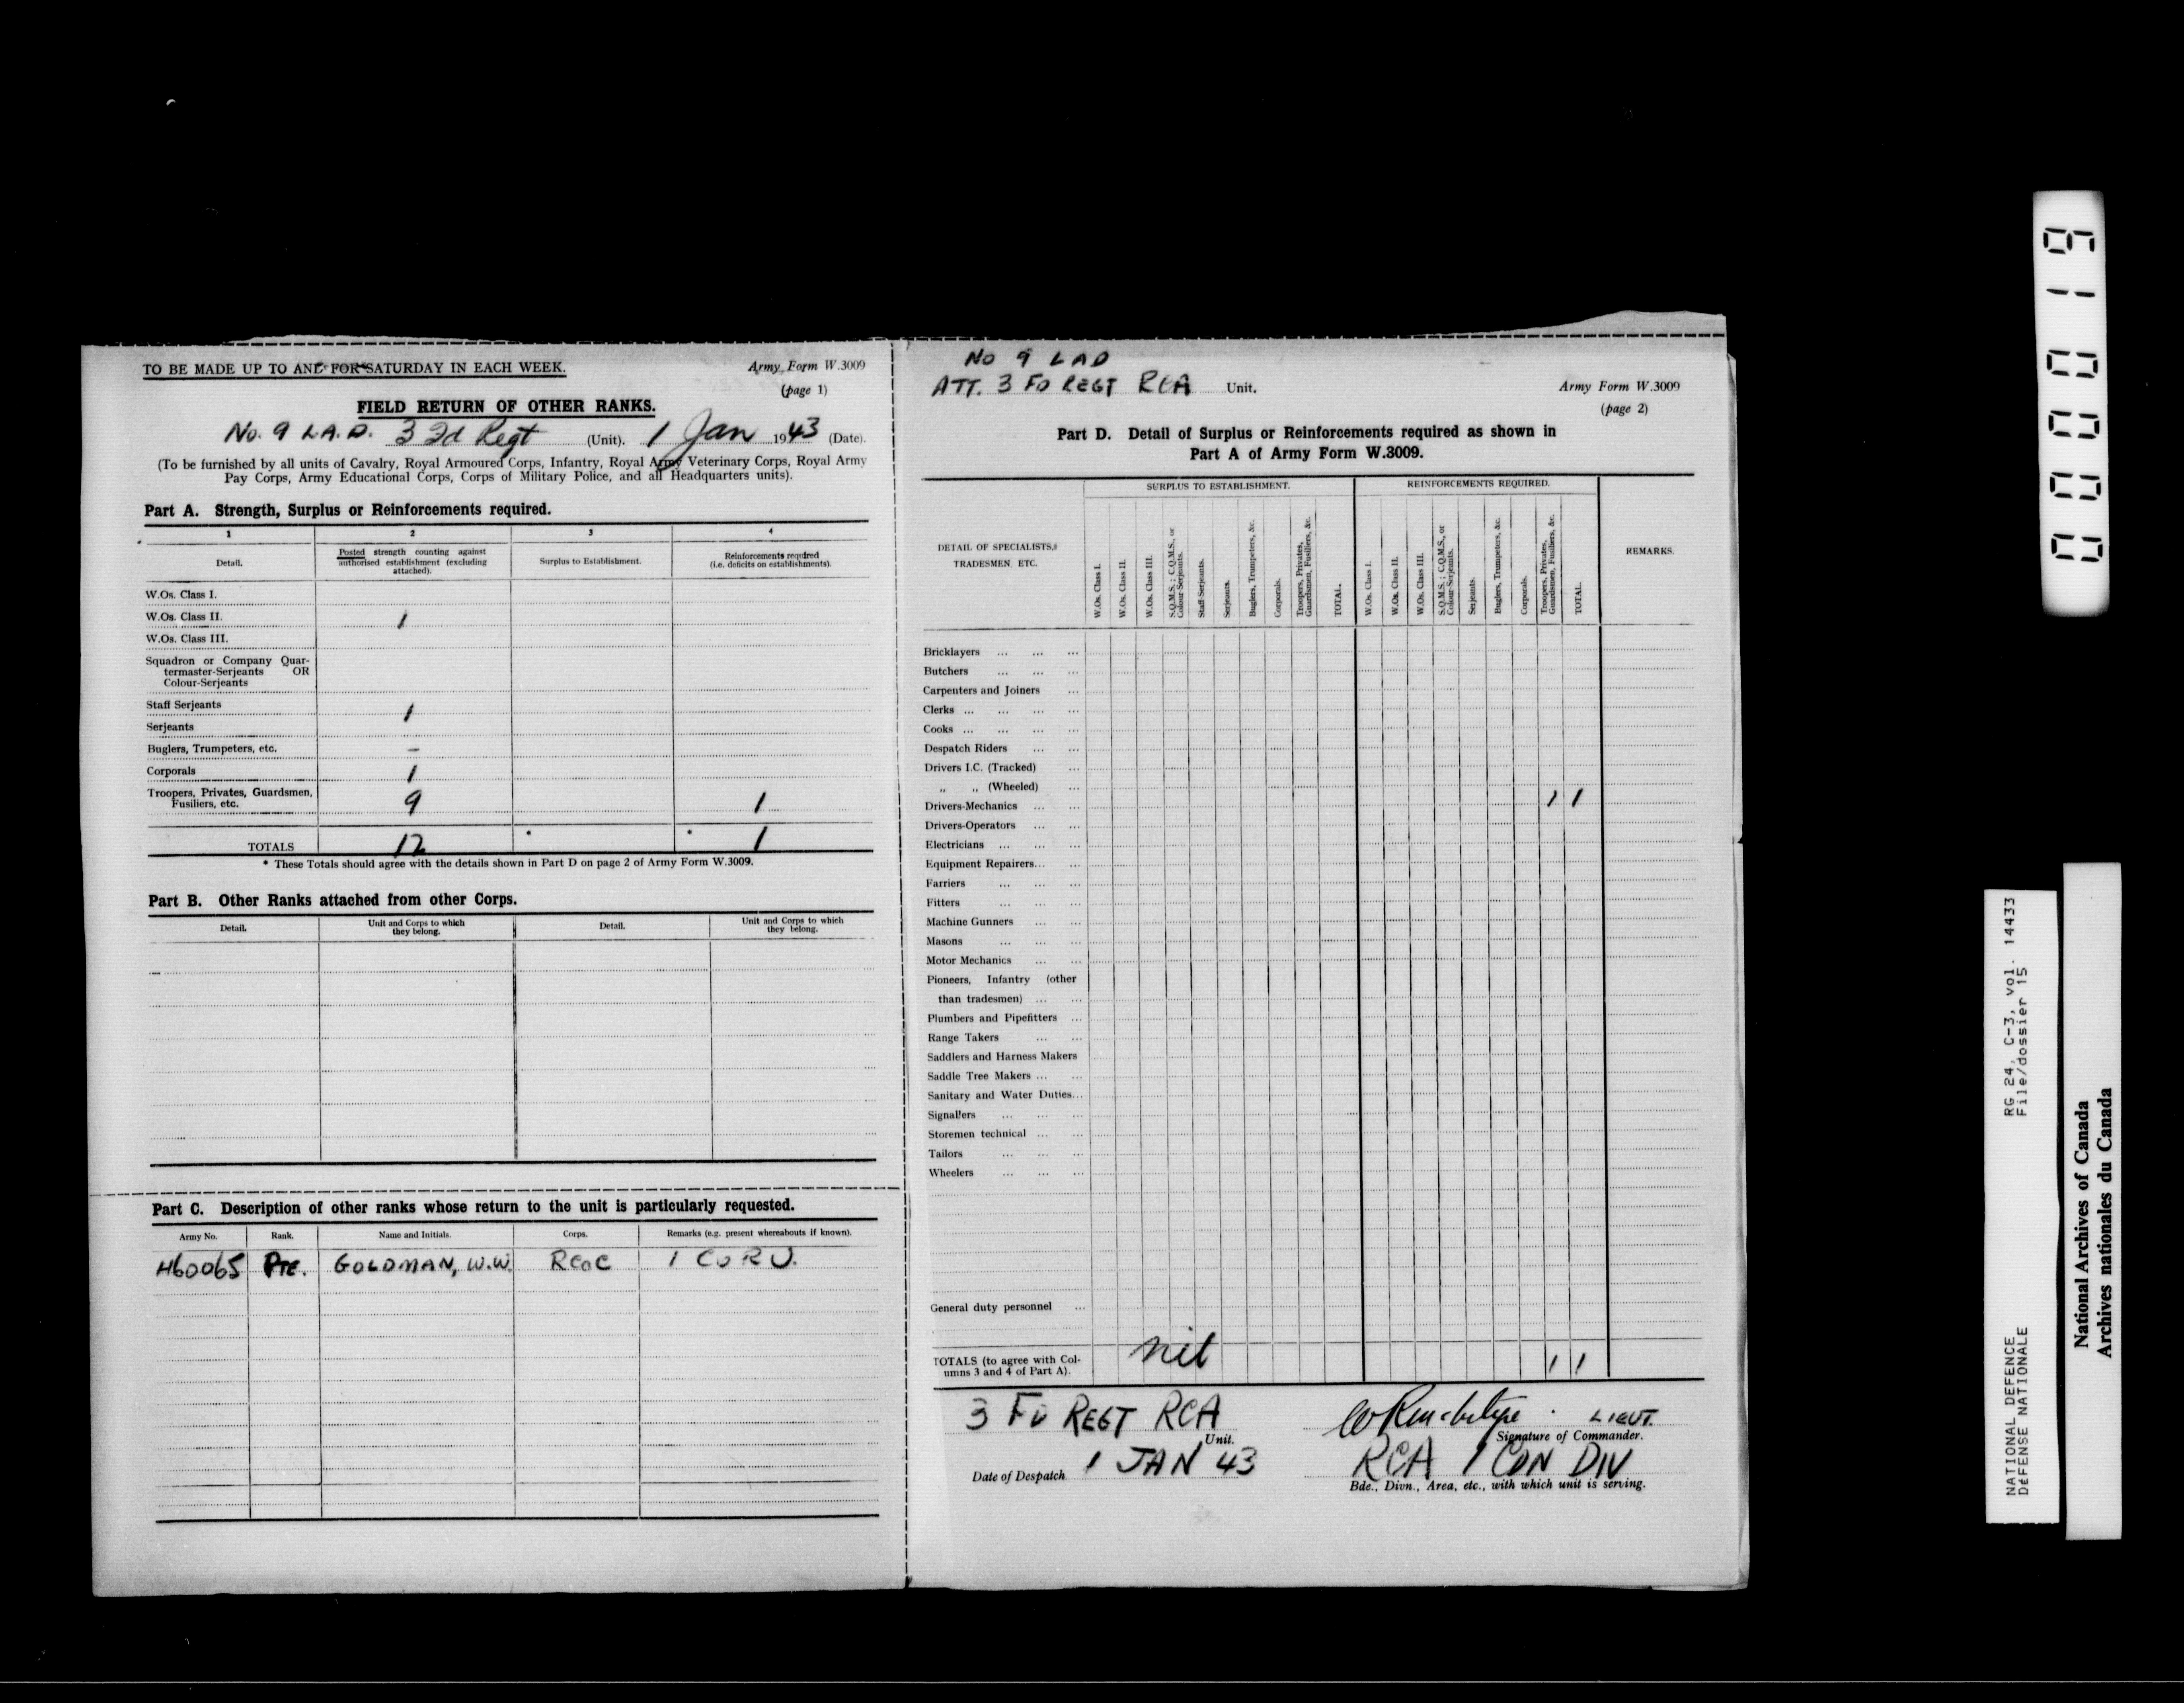 TO BE MADE UP TO AND FOR SATURDAY IN EACH WEEK.
Army Form W.3009
(page 1)
FIELD RETURN OF OTHER RANKS.
No. 9 L.A.D. 3 Fd Regt (Unit). 1 Jan 1943 (Date).
(To be furnished by all units of Cavalry, Royal Armoured Corps, Infantry, Royal Army Veterinary Corps, Royal Army
Pay Corps, Army Educational Corps, Corps of Military Police, and all Headquarters units).
Part A. Strength, Surplus or Reinforcements required.
1 2 3 4
Detail.
Posted strength counting against
authorised establishment (excluding
attached).
Surplus to Establishment.
Reinforcements required
(i.e. deficits on establishments).
W.Os. Class I.
W.Os. Class II. 1
W.Os. Class III.
Squadron or Company Quar-
termaster-Serjeants OR
Colour-Serjeants
Staff Serjeants 1
Serjeants
Buglers, Trumpeters, etc. –
Corporals 1
Troopers, Privates, Guardsmen,
Fusiliers, etc. 9 1
TOTALS 12 * * 1
* These Totals should agree with the details shown in Part D on page 2 of Army Form W.3009.
Part B. Other Ranks attached from other Corps.
Detail.
Unit and Corps to which
they belong.
Detail.
Unit and Corps to which
they belong.
Part C. Description of other ranks whose return to the unit is particularly requested.
Army No. Rank. Name and Initials. Corps. Remarks (e.g. present whereabouts if known).
H60065 Pte. GOLDMAN, W.W. RCOC 1 CORU.
No 9 LAD
ATT. 3 FD REGT RCA Unit.
Army Form W.3009
(page 2)
Part D. Detail of Surplus or Reinforcements required as shown in
Part A of Army Form W.3009.
DETAIL OF SPECIALISTS,
TRADESMEN, ETC.
SURPLUS TO ESTABLISHMENT.
W.Os. Class I.
W.Os. Class II.
W.Os. Class III.
S.Q.M.S.; C.Q.M.S., or
Colour-Serjeants.
Staff-Serjeants.
Serjeants.
Buglers, Trumpeters, &c.
Corporals.
Troopers, Privates,
Guardsmen, Fusiliers, &c.
TOTAL.
REINFORCEMENTS REQUIRED.
W.Os. Class I.
W.Os. Class II.
W.Os. Class III.
S.Q.M.S.; C.Q.M.S., or
Colour-Serjeants.
Serjeants.
Buglers, Trumpeters, &c.
Corporals.
Troopers, Privates,
Guardsmen, Fusiliers, &c.
TOTAL.
REMARKS.
Bricklayers ... ... ...
Butchers ... ... ...
Carpenters and Joiners ...
Clerks ... ... ... ...
Cooks ... ... ... ...
Despatch Riders ... ...
Drivers I.C. (Tracked) ...
„ „ (Wheeled) ...
Drivers-Mechanics ... ... 1 1
Drivers-Operators ... ...
Electricians ... ... ...
Equipment Repairers... ...
Farriers ... ... ...
Fitters ... ... ...
Machine Gunners ... ...
Masons ... ... ...
Motor Mechanics ... ...
Pioneers, Infantry (other
than tradesmen) ... ...
Plumbers and Pipefitters ...
Range Takers ... ...
Saddlers and Harness Makers
Saddle Tree Makers ... ...
Sanitary and Water Duties...
Signallers ... ... ...
Storemen technical ... ...
Tailors ... ... ...
Wheelers ... ... ...
General duty personnel ...
TOTALS (to agree with Col-
umns 3 and 4 of Part A). nil 1 1
3 FD REGT RCA
Unit.
LIEUT.
Signature of Commander.
Date of Despatch 1 JAN 43
RCA 1 CDN DIV
Bde., Divn., Area, etc., with which unit is serving.
000019
RG 24, C-3, vol. 14433
File/dossier 15
NATIONAL DEFENCE
DÉFENSE NATIONALE
National Archives of Canada
Archives nationales du Canada